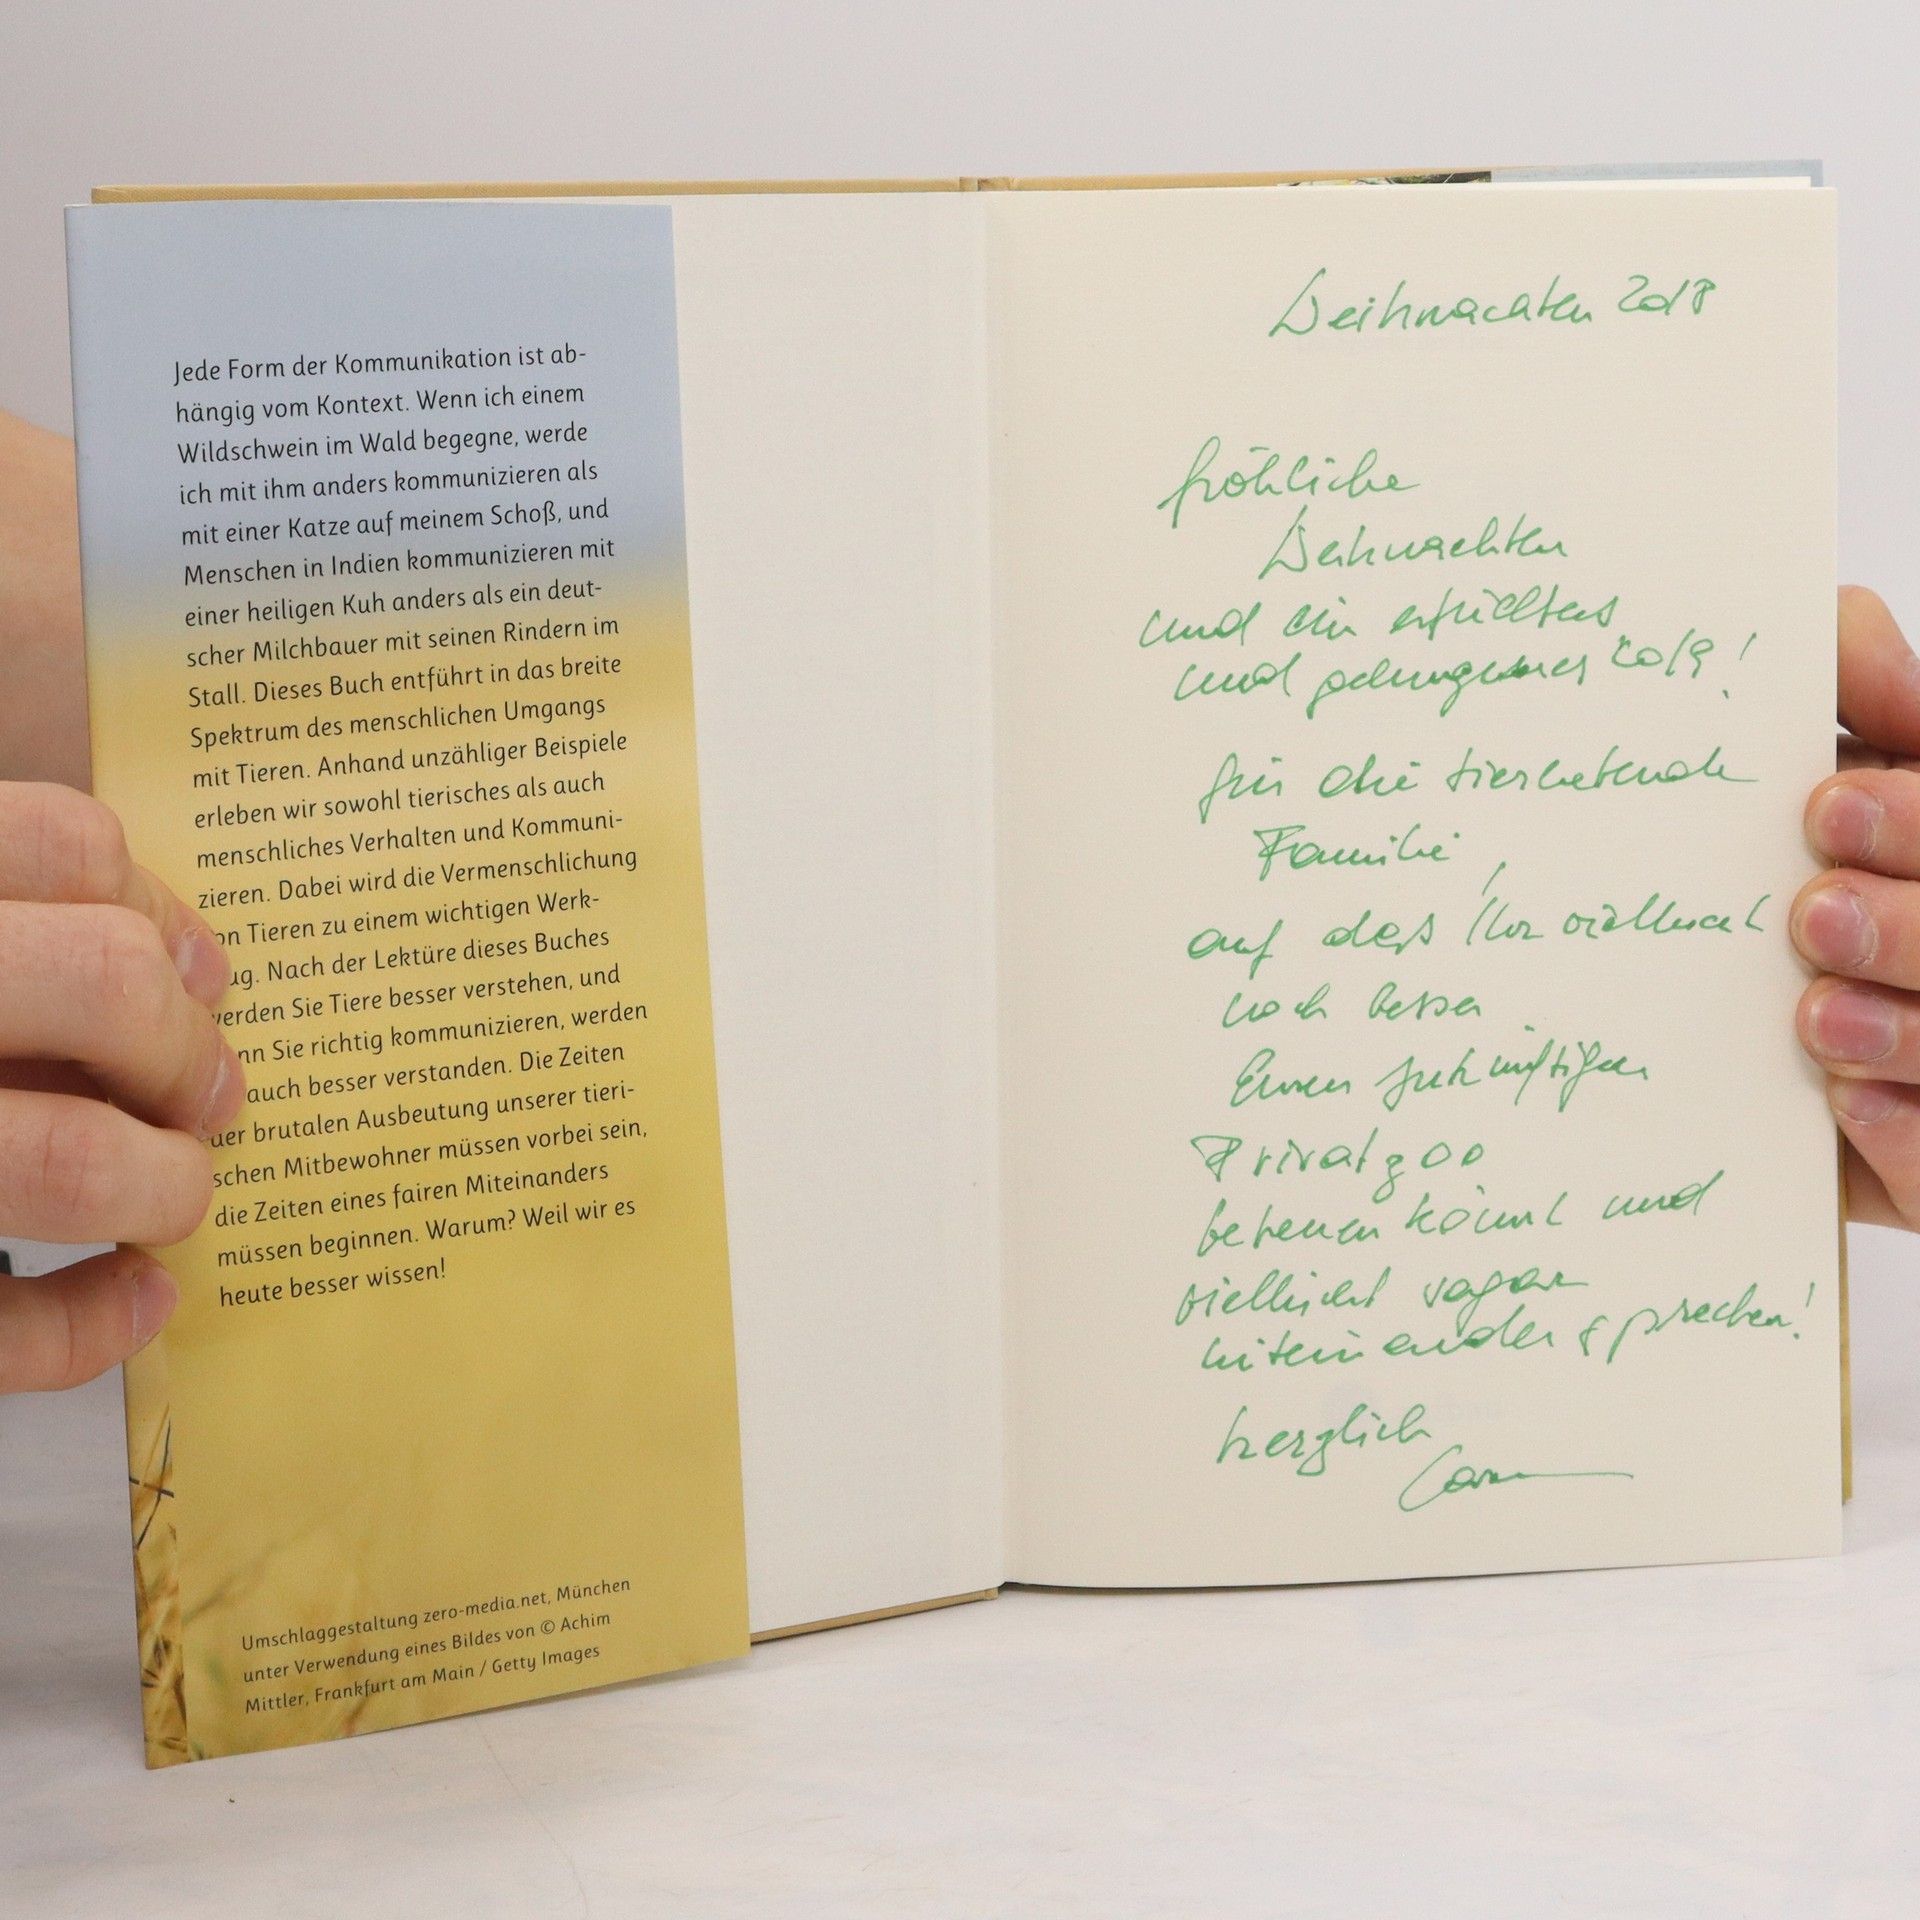 Jede Form der Kommunikation ist ab-
hängig vom Kontext. Wenn ich einem
Wildschwein im Wald begegne, werde
ich mit ihm anders kommunizieren als
mit einer Katze auf meinem Schoß, und
Menschen in Indien kommunizieren mit
einer heiligen Kuh anders als ein deut-
scher Milchbauer mit seinen Rindern im
Stall. Dieses Buch entführt in das breite
Spektrum des menschlichen Umgangs
mit Tieren. Anhand unzähliger Beispiele
erleben wir sowohl tierisches als auch
menschliches Verhalten und Kommuni-
zieren. Dabei wird die Vermenschlichung
on Tieren zu einem wichtigen Werk-
ug. Nach der Lektüre dieses Buches
erden Sie Tiere besser verstehen, und
nn Sie richtig kommunizieren, werden
auch besser verstanden. Die Zeiten
der brutalen Ausbeutung unserer tieri-
schen Mitbewohner müssen vorbei sein,
die Zeiten eines fairen Miteinanders
müssen beginnen. Warum? Weil wir es
heute besser wissen!
Umschlaggestaltung zero-media.net, München
unter Verwendung eines Bildes von © Achim
Mittler, Frankfurt am Main / Getty Images
Weihnachten 2018
fröhliche
Weihnachten
und ein erfülltes
und gelungenes 2019!
für die tierliebende
Familie,
auf daß Ihr vielleicht
noch besser
Euren zukünftigen
Privatzoo
betreuen könnt und
vielleicht sogar
miteinander sprechen!
herzlich